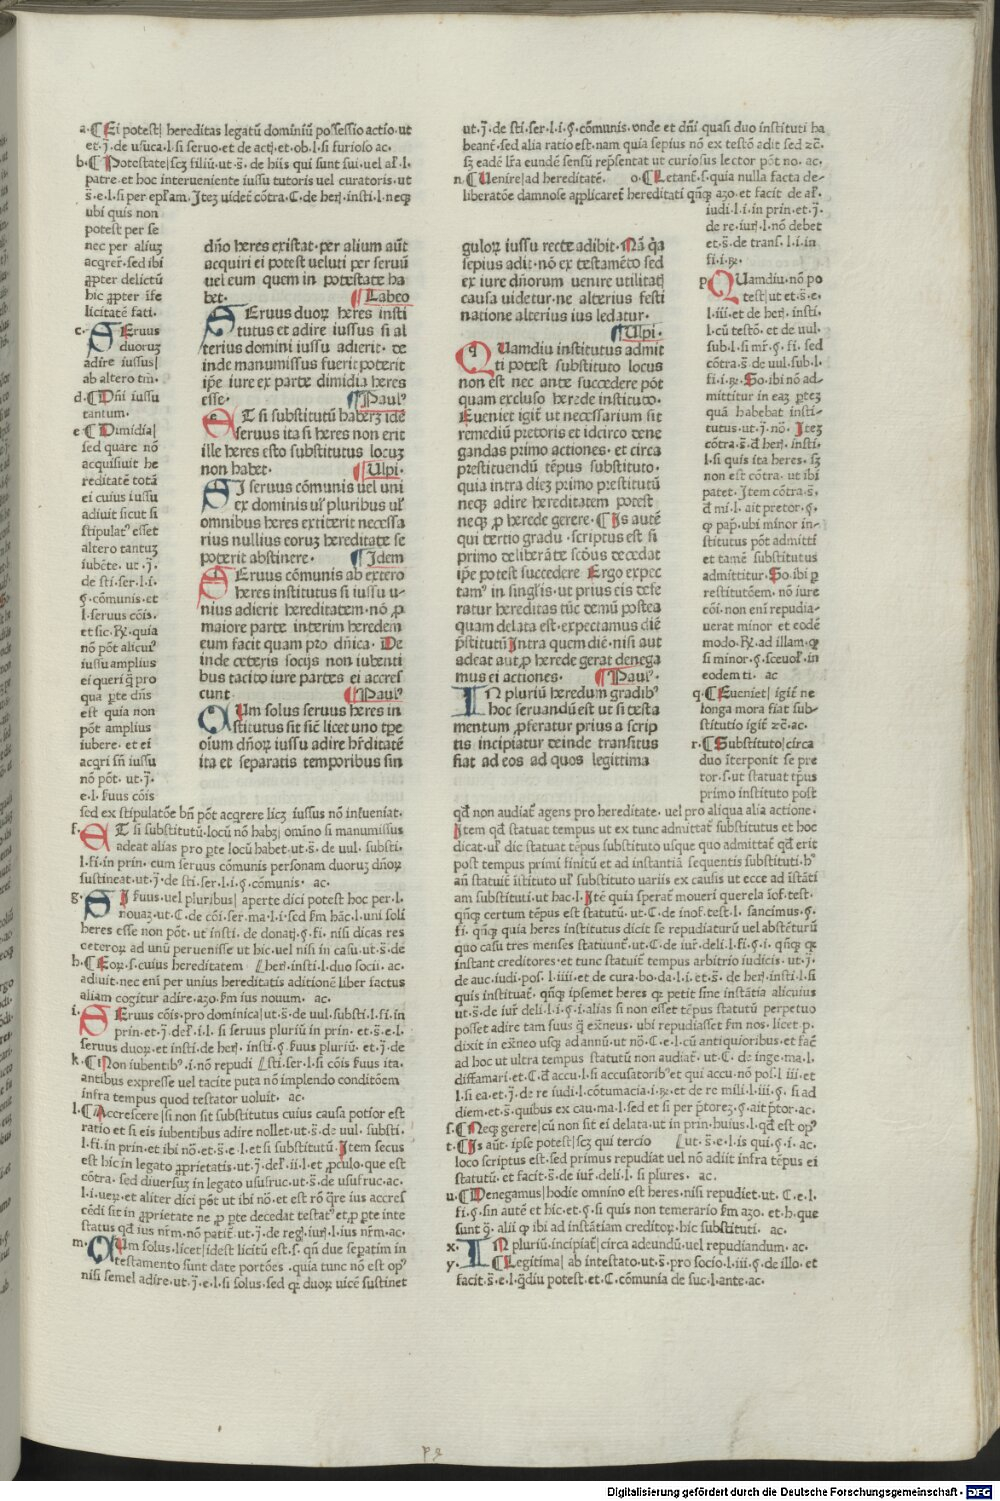 a. Ei potest| hereditas legatū dominiū possessio actio ut
et.j̄. de usuca.l.si seruo.et de actj.et ob.l.si furioso ac.
b. Potestate|scz filiū.ut.s̄.de hiis qui sunt sui.uel al'.l.
patre.et hoc interueniente iussu tutoris uel curatoris.ut
s̄.e.l.si per epl'am.Itez uidet̄ cōtra.C.de herj.insti.l.neqz
ubi quis non
potest per se
nec per aliuz
acqrer̄.sed ibi
ꝓpter delictū
hic ꝓpter īfe
licitatē fati.
c. SEruus
duoruz
adire iussus|
ab altero tm̄.
d. Dn̄i iussu
tantum.
e Dimidia|
sed quare nō
acquisiuit he
reditatē totā
ei cuius iussu
adiuit sicut si
stipulatꝰ esset
altero tantuz
iubēte. ut .j̄.
de sti.ser.l.i.
ꝭ.cōmunis.et
l.seruus cōis.
et sic.℞.quia
nō pōt alicuiꝰ
iussu amplius
ei queri q̄ pro
qua ꝑte dn̄s
est quia non
pōt amplius
iubere. et ei
acqri sn̄ iussu
nō pōt. ut.j̄.
e.l. s̄uus cōis
sed ex stipulatōe bn̄ pōt acqrere licz iussus nō int̄ueniat.
f. ET si substitutū.locū nō habz| omīno si manumissus
adeat alias pro ꝑte locū habet.ut.s̄.de uul. substi.
l.fi.in prin. cum seruus cōmunis personam duoruz dn̄oꝝ
sustineat.ut.j̄.de sti.ser.l.i.ꝭ.cōmunis. ac.
g. SI s̄uus.uel pluribus| aperte dici potest hoc per.l.
nouaz.ut.C.de cōi.ser.ma.l.i.sed s̄m hāc.l.uni soli
heres esse non pōt.ut insti.de donatj.ꝭ.fi. nisi dicas res
ceteroꝝ ad unū peruenisse ut hic.uel nisi in casu.ut.s̄.de
h. Eoꝝ.s.cuius hereditatem [herj.insti.l.duo socii. ac.
adiuit.nec eni per unius hereditatis aditionē liber factus
aliam cogitur adire.azo.s̄m ius nouum. ac.
i. SEruus cōis.pro dominica|ut.s̄.de uul.substi.l.fi.in
prin.et.j̄.del'.i.l. si seruus pluriū in prin.et.s̄.e.l.
seruus duoꝝ.et insti.de herj. insti.ꝭ.s̄uus pluriū.et.j̄.de
k. Non iubentibꝰ.i.nō repudi [sti.ser.l.si cōis s̄uus ita.
antibus expresse uel tacite puta nō implendo conditōem
infra tempus quod testator uoluit. ac.
l. Accrescere|si non sit substitutus cuius causa potior est
ratio et si eis iubentibus adire nollet.ut.s̄.de uul. substi.
l.fi.in prin.et ibi nō.et s̄.e.l.et si substitutū.Item secus
est hic in legato ꝓprietatis.ut.j̄.del'.ii.l.et ꝓculo.que est
cōtra.sed diuersuz in legato ususfruc.ut.s̄.de usufruc.ac.
l.i.ueꝝ.et aliter dici pōt ut ibi nō.et est rō q̄re ius accres
cēdi sit in ꝓprietate ne ꝓ ꝑte decedat testatꝰ et ꝓ ꝑte inte
status qd̄ ius nr̄m.nō patit̄.ut.j̄.de regj.iurj.l.ius nr̄m.ac.
m. CUm solus.licet|idest licitū est.s. qn̄ due separatim in
testamento sunt date portōes .quia tunc nō est opꝰ
nisi semel adire.ut.j̄.e.l.si solus.sed qꝫ duoꝝ uicē sustinet
dn̄o heres existat.per alium aūt
acquiri ei potest ueluti per seruū
uel eum quem in potestate ha
bet. Labeo
SEruus duoꝝ heres insti
tutus et adire iussus si al
terius domini iussu adierit. de
inde manumissus fuerit poterit
ip̄e iure ex parte dimidia heres
esse. Paulꝰ
ET si substitutū haberz idē
seruus ita si heres non erit
ille heres esto substitutus locuz
non habet. Ulpi.
SI seruus cōmunis uel uni
ex dominis ul' pluribus ul'
omnibus heres extiterit necessa
rius nullius eoruz hereditate se
poterit abstinere. Idem
SEruus cōmunis ab extero
heres institutus si iussu u-
nius adierit hereditatem.nō ꝓ
maiore parte interim heredem
eum facit quam pro dn̄ica. De
inde ceteris socijs non iubenti
bus tacito iure partes ei accres
cunt. Paulꝰ
CUm solus seruus heres in
stitutus sit sic̄ licet uno tꝑe
oīum dn̄oꝝ iussu adire hr̄ditatē
ita et separatis temporibus sin
guloꝝ iussu recte adibit.Nā q̄a
sepius adit.nō ex testamēto sed
ex iure dn̄orum uenire utilitatj
causa uidetur.ne alterius festi
natione alterius ius ledatur.
Ulpi.
QUamdiu institutus admit
ti potest substituto locus
non est nec ante succedere pōt
quam excluso herede instituto.
Eueniet igit̄ ut necessarium sit
remediū pretoris et idcirco dene
gandas primo actiones.et circa
prestituendū tēpus substituto.
quia intra diez primo prestitutū
neqz adire hereditatem potest
neqz ꝓ herede gerere. Is autē
qui tertio gradu .scriptus est si
primo deliberāte scdōus decedat
ip̄e potest succedere Ergo expec
tamꝰ in singl'is.ut prius eis defe
ratur hereditas tūc demū postea
quam delata est.expectamus diē
p̄stitutū Intra quem diē.nisi aut
adeat aut ꝓ herede gerat denega
mus ei actiones. Paulꝰ.
IN pluriū heredum gradibꝰ
hoc seruandū est ut si testa
mentum ꝓferatur prius a scrip
tis incipiatur deinde transitus
fiat ad eos ad quos legittima
ut.j̄.de sti.ser.l.i.ꝭ.cōmunis.onde et dn̄i quasi duo instituti ha
beant̄.sed alia ratio est.nam quia sepius nō ex testō adit sed ⁊c̄.
sz eadē lr̄a eundē sensū repn̄tat ut curiosus lector pōt no. ac.
n. Uenire|ad hereditatē. o. Letant̄.s.quia nulla facta de-
liberatōe damnose applicaret̄ hereditati qn̄qz azo.et facit de al'.
iudi.l.i.in prin.et.j̄.
de re.iurj.l.nō debet
et.s̄.de trans̄.l.i.in
fi.i.℞.
p QUamdiu.nō po
test|ut et.s̄.e.
l.iii.et de herj. insti.
l.cū testō.et de uul.
sub.l.si mr̄.ꝭ. fi. sed
cōtra.s̄.de uul.sub.l.
fi.i.℞.So.ibi nō ad-
mittitur in eaz ꝑtez
quā habebat insti-
tutus.ut.j̄.nō. Itez
cōtra.s̄.d̄ herj. insti.
l.si quis ita heres. sz
non est cōtra.ut ibi
patet. Item cōtra.s̄.
d̄ mi.l. ait pretor.ꝭ.
ꝙ pap̄.ubi minor in-
stitutus pōt admitti
et tamē substitutus
admittitur.So.ibi ꝑ
restitutōem. nō iure
cōi.non eni repudia-
uerat minor et eodē
modo.℞.ad illam.ꝙ
si minor.ꝭ.sceuol'.in
eodem ti. ac
q. Eueniet| igit̄ ne
longa mora fiat sub-
stitutio igit̄ ⁊c̄.ac.
r. Substituto|circa
duo īterponit se pre
tor.s.ut statuat tp̄us
primo instituto post
qd̄ non audiat̄ agens pro hereditate. uel pro aliqua alia actione.
Item qd̄ statuat tempus ut ex tunc admittat̄ substitutus et hoc
dicat.ul' dic statuat tēpus substituto usque quo admittat̄ qd̄ erit
post tempus primi finitū et ad instantiā sequentis substituti.hꝰ
an̄ statuit̄ īstituto ul' substituto variis ex causis ut ecce ad īstāti
am substituti.ut hac.l. Itē quia sperat̄ moueri querela īof.test.
qn̄qz certum tēpus est statutū.ut.C.de inof.test.l. sancimus.ꝭ.
fi. qn̄qz quia heres institutus dicit se repudiaturū uel abstēturū
quo casu tres menses statuunt̄.ut.C.de iur̄.deli.l.fi.ꝭ.i. qn̄qz qꝫ
instant creditores.et tunc statuit̄ tempus arbitrio iudicis.ut.j̄.
de auc.iudi.pos.l.iiii.et de cura.bo.da.l.i.et.s̄.de herj.insti.l.si
quis instituat̄. qn̄qz ipsemet heres qꝫ petit sine instātia alicuius
ut.s̄.de iur̄ deli.l.i.ꝭ.i.alias si non esset tēpus statutū perpetuo
posset adire tam suus q̄ exn̄eus. ubi repudiasset s̄m nos. licet p.
dixit in exn̄eo usqz ad annū.ut nō.C.e.l.cū antiquioribus.et fac̄
ad hoc ut ultra tempus statutū non audiat̄. ut.C. de inge.ma.l.
diffamari.et.C.d̄ accu.l.si accusatoribꝰ et qui accu.nō pos.l iii.et
l.si ea.et.j̄.de re iudi.l.cōtumacia.i.℞.et de re mili.l.iii.ꝭ. si ad
diem.et.s̄.quibus ex cau.ma.l.sed et si per p̄torez.ꝭ.ait p̄tor.ac.
s. Neqz gerere|cū non sit ei delata.ut in prin.huius.l.qd̄ est opꝰ
t. Is aūt. ipse potest|scz qui tercio [ut.s̄.e.l.is qui.ꝭ.i. ac.
loco scriptus est.sed primus repudiat uel nō adiit infra tēpus ei
statutū. et facit.s̄.de iur̄.deli.l.si plures. ac.
u. Denegamus|hodie omnino est heres.nisi repudiet.ut. C.e.l.
fi.ꝭ.sin autē et hic et.ꝭ.si quis non temerario s̄m azo.et.h.que
sunt 9̄. alii ꝙ ibi ad instātiam creditoꝝ.hic substituti. ac.
x. IN pluriū.incipiat̄|circa adeundū.uel repudiandum. ac.
y. Legitima| ab intestato.ut.s̄.pro socio.l.iii.ꝭ.de illo.et
facit.s̄.e.l.q̄diu potest.et.C.cōmunia de suc.l.ante.ac.
Digitalisierung gefördert durch die Deutsche Forschungsgemeinschaft - DFG